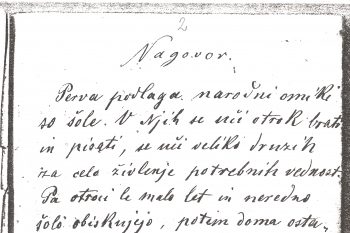 2
Nagovor.
Perva podlaga narodni omiki
so šole. V Njih se uči otrok brati
in pisati, se uči veliko druzih
za celo življenje potrebnih vednost
Pa otroci le malo let in neredno
šolo obiskujejo, potem doma osta-